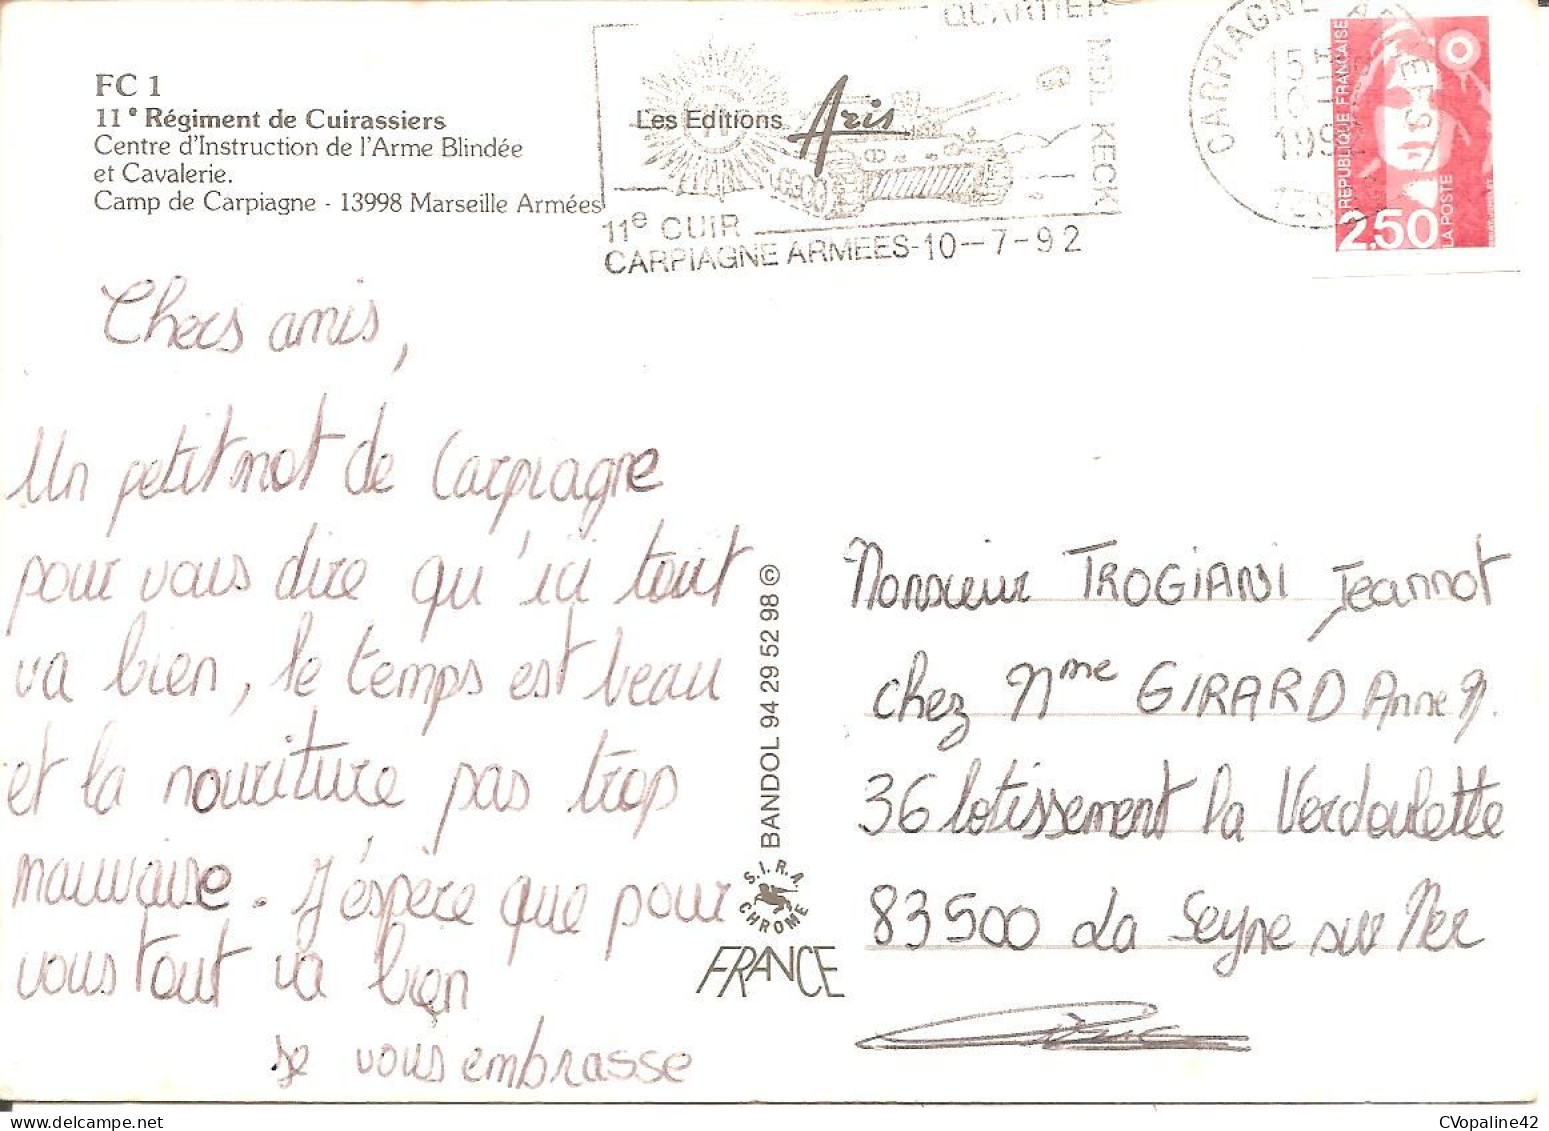 FC 1
11e Régiment de Cuirassiers
Centre d'Instruction de l'Arme Blindée
et Cavalerie.
Camp de Carpiagne - 13998 Marseille Armées
Les Editions Aris
QUARTIER
MDL KECK
11e CUIR
CARPIAGNE ARMEES-10-7-92
CARPIAGNE
15
199
REPUBLIQUE FRANCAISE
2,50
LA POSTE
Chers amis,
Un petit mot de Carpiagne
pour vous dire qu'ici tout
va bien, le temps est beau
et la nourriture pas trop
mauvaise. J'espère que pour
vous tout va bien
Je vous embrasse
BANDOL 94 29 52 98 ©
S.I.R.A.
CHROME
FRANCE
Monsieur TROGIANI Jeannot
chez Mme GIRARD Anne M.
36 lotissement la Verdoulette
83500 La Seyne sur Mer
CVopaline42